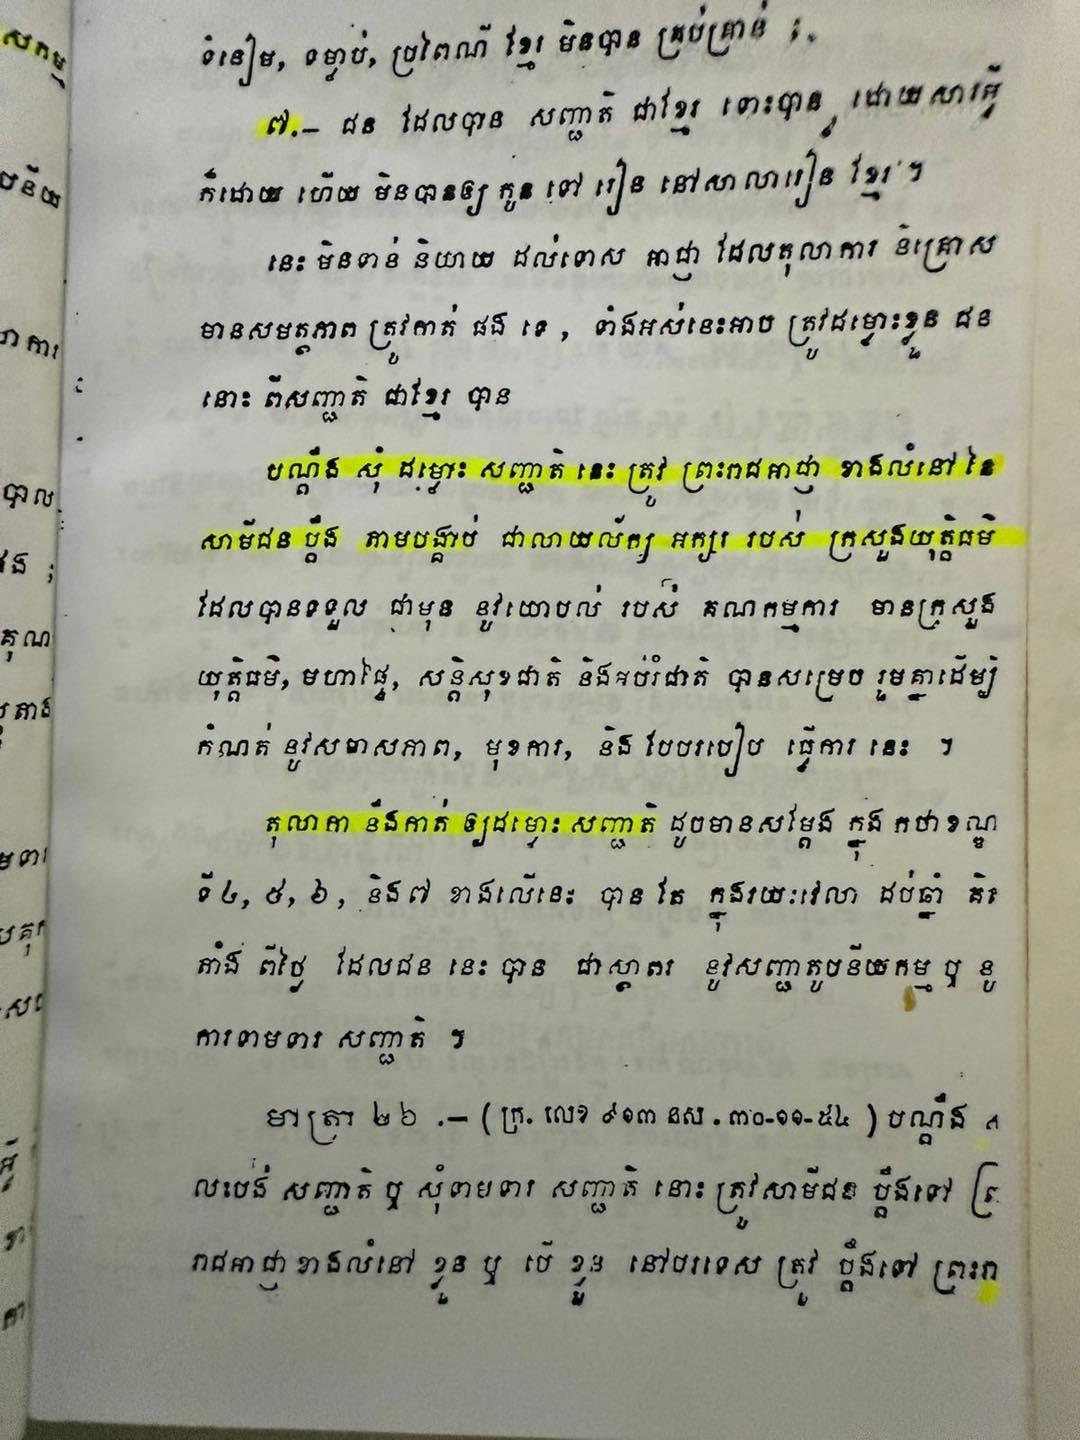 សកម្ម
ទំនៀម, ទម្លាប់, ប្រពៃណី ខ្មែរ មិនបាន គ្រប់គ្រាន់ ;
៧.— ជន ដែលបាន សញ្ជាតិ ជាខ្មែរ ទោះបាន ដោយសារអ្វី
ក៏ដោយ ហើយ មិនបានឲ្យ កូន ទៅ រៀន នៅសាលារៀន ខ្មែរ ។
នេះ មិនទាន់ និយាយ ដល់ទោស អាជ្ញា ដែលតុលាការ និគ្រោស
មានសមត្ថភាព ត្រូវកាត់ ផង ទេ , ទាំងអស់នេះអាច ត្រូវដម្លោះខ្លួន ជន
នោះ ពីសញ្ជាតិ ជាខ្មែរ បាន
បណ្ដឹង សុំ ដម្លោះ សញ្ជាតិ នេះ ត្រូវ ព្រះរាជអាជ្ញា ខាងលំនៅ នៃ
សាមីជន ប្ដឹង តាមបង្គាប់ ជាលាយល័ក្ខ អក្សរ របស់ ក្រសួងយុត្តិធម៌
ដែលបានទទួល ជាមុន នូវយោបល់ របស់ គណកម្មការ មានក្រសួង
យុត្តិធម៌, មហាផ្ទៃ, សន្តិសុខជាតិ និងអប់រំជាតិ បានសម្រេច រួមគ្នាដើម្បី
កំណត់ នូវសមាសភាព, មុខការ, និង បែបរបៀប ធ្វើការ នេះ ។
តុលាកា នឹងកាត់ ឲ្យដម្លោះ សញ្ជាតិ ដូចមានសម្ដែង ក្នុង កថាខណ្ឌ
ទី៤, ៥, ៦, និង៧ ខាងលើនេះ បាន តែ ក្នុងរយៈវេលា ដប់ឆ្នាំ គិត
តាំង ពីថ្ងៃ ដែលជន នេះ បាន ជាស្ថាពរ នូវសញ្ជាតូបនីយកម្ម ឬ នូ
ការទាមទារ សញ្ជាតិ ។
មាត្រា ២៦ .— ( ក្រ. លេខ ៩១៣ នស . ៣០-១១-៥៤ ) បណ្ដឹង
លះបង់ សញ្ជាតិ ឬ សុំទាមទារ សញ្ជាតិ នោះ ត្រូវសាមីជន ប្ដឹងទៅ ព្រ
រាជអាជ្ញា ខាងលំនៅ ខ្លួន ឬ បើ ខ្លួន នៅបរទេស ត្រូវ ប្ដឹងទៅ ព្រះរា